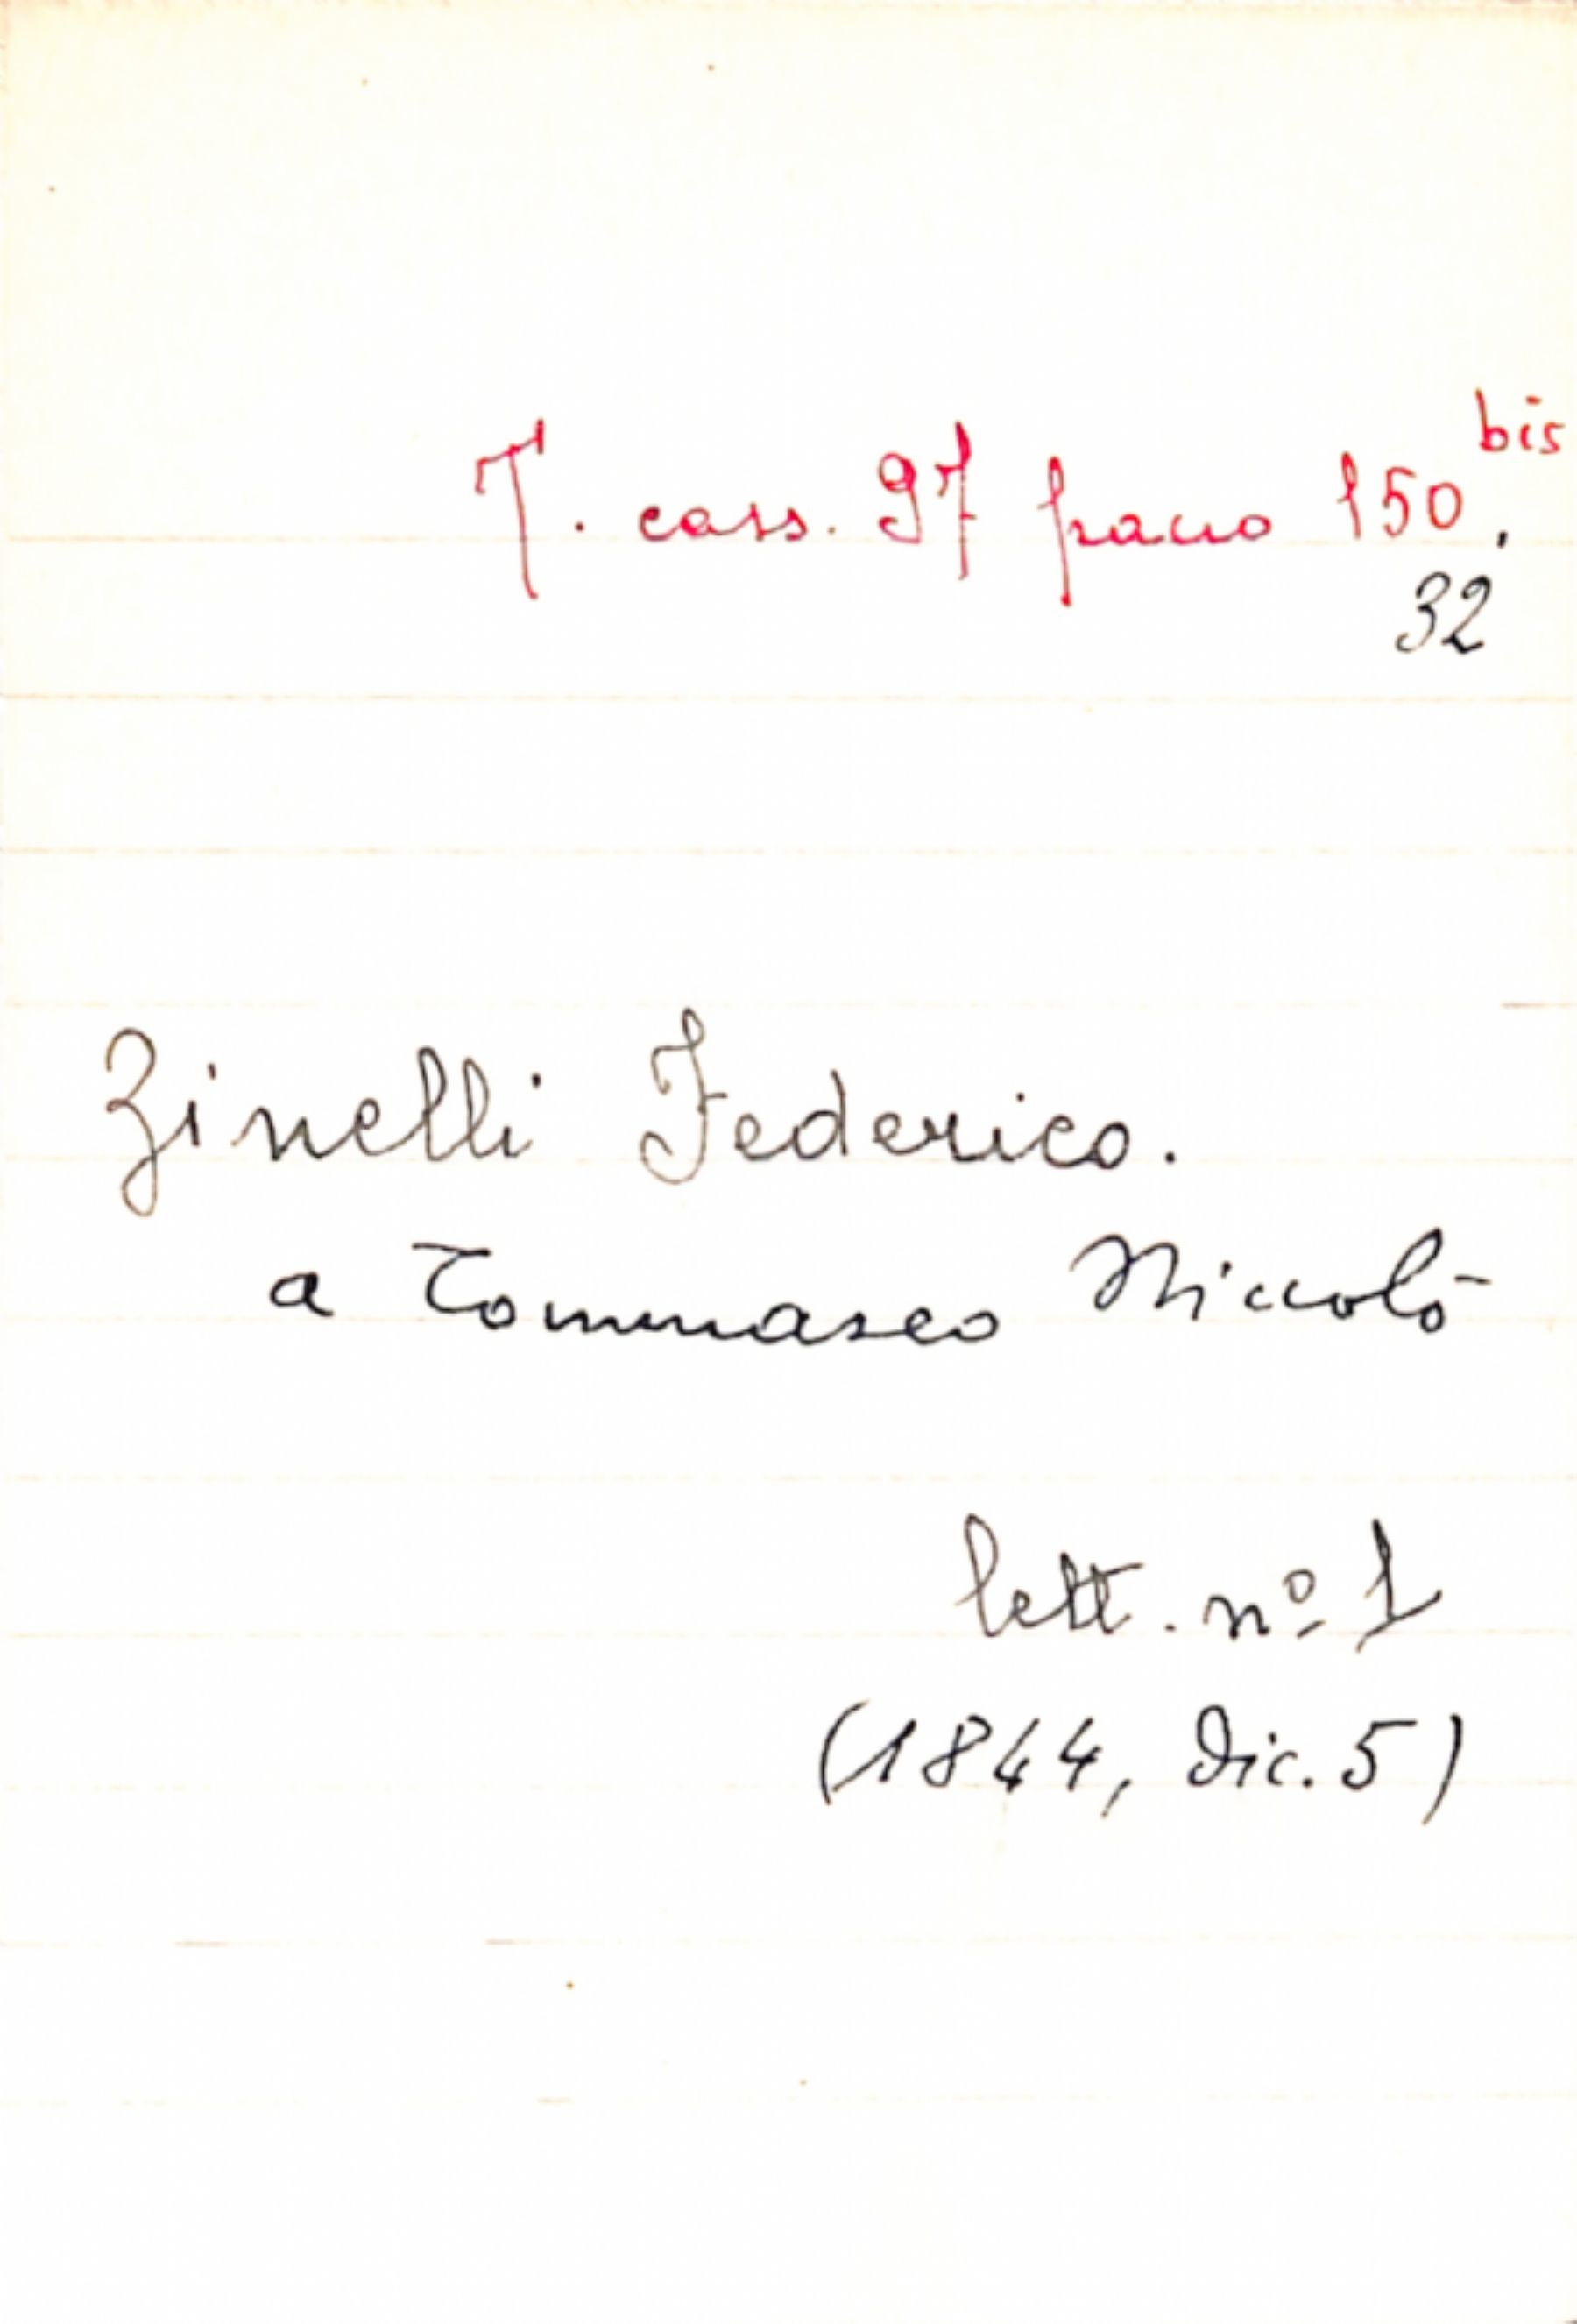 T. cass. 97 pacco 150 bis.
32
Zinelli Federico.
a Tommaseo Niccolò
lett. nº 1
(1844, Dic. 5)